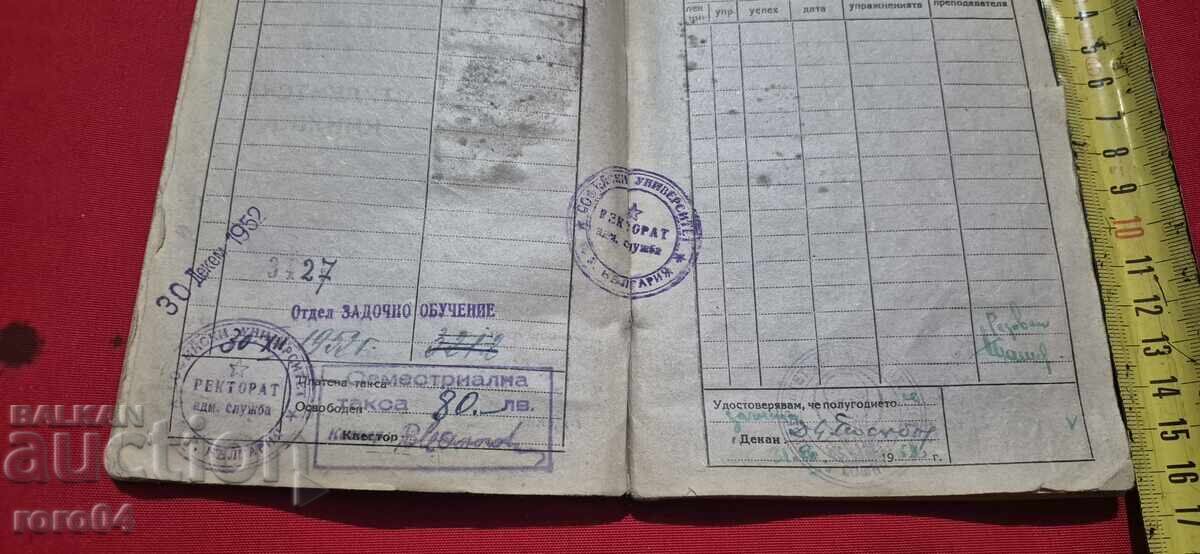 упр.
успех
дата
упражненията
преподавателя
30 Декем. 1952
27
Отдел ЗАДОЧНО ОБУЧЕНИЕ
1952 г.
2212
РЕКТОРАТ
адм. служба
БЪЛГАРИЯ
Платена такса
Семестриална
такса 80.- лв.
Освободен
Квестор
СОФИЙСКИ УНИВЕРСИТЕТ
РЕКТОРАТ
адм. служба
БЪЛГАРИЯ
Удостоверявам, че полугодието
Декан
19 г.
4
5
6
7
8
9
10
11
12
13
14
15
16
17
BALKAN
auction
roro64